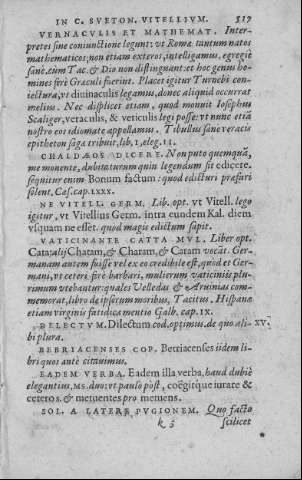 IN C. SVETON. VITELLIVM. 517
VERNACVLIS ET MATHEMAT. Inter-
pretes sine coniunctione legunt: vt Romæ tantum natos
mathematicos, non etiam exteros, intelligamus. egregiè
sanè. cùm Tac. & Dio non distinguant: et hoc genus ho-
mines ferè Græculi fuerint. Placet igitur Turnebi con-
iectura, vt diuinaculis legamus, donec aliquid occurrat
melius. Nec displicet etiam, quod monuit Iosephus
Scaliger, veraculis, & veticulis legi posse: vt nunc etiã
nostro eos idiomate appellamus. Tibullus sanè veracis
epitheton saga tribuit, lib. 1, eleg. 11.
CHALDÆOS DICERE. Non puto quemquã,
me monente, dubitaturum quin legendum sit edicere.
sequitur enim Bonum factum: quod edicturi præfari
solent. Cæs. cap. LXXX.
NE VITELL. GERM. Lib. opt. vt Vitell. lego
igitur, vt Vitellius Germ. intra eundem Kal. diem
vsquam ne esset. quod magis edictum sapit.
VATICINANTE CATTA MVL. Liber opt.
Catta, alij Chatam, & Charam, & Caram vocãt. Ger-
manam autem fuisse vel ex eo credibile est, quòd et Ger-
mani, vt ceteri ferè barbari, mulierum vaticiniis plu-
rimum vtebantur: quales Velledas & Aruinias com-
memorat, libro de ipsorum moribus, Tacitus. Hispanæ
etiam virginis fatidicæ mentio Galb. cap. IX.
DELECTVM. Dilectum cod. optimus. de quo ali- XV.
bi plura.
BEBRIACENSES COP. Betriacenses iidem li-
bri quos antè citauimus.
EADEM VERBA. Eadem illa verba, haud dubiè
elegantius, MS. duo: vt paulò pòst, coëgitque iurare &
ceteros. & metuentes pro memens.
SOL. A LATERE PVGIONEM. Quo facto
k 3 scilicet